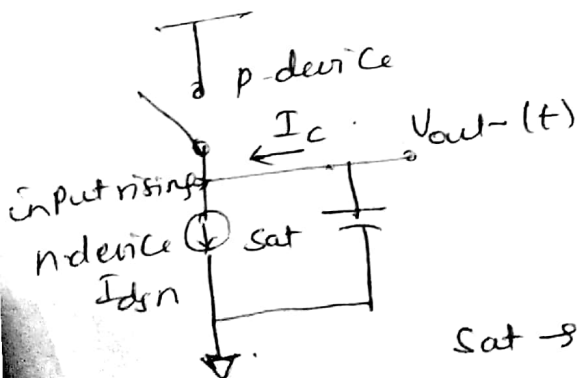 p-device
Ic
Vout(t)
input rising
n-device
sat
Idsn
Sat